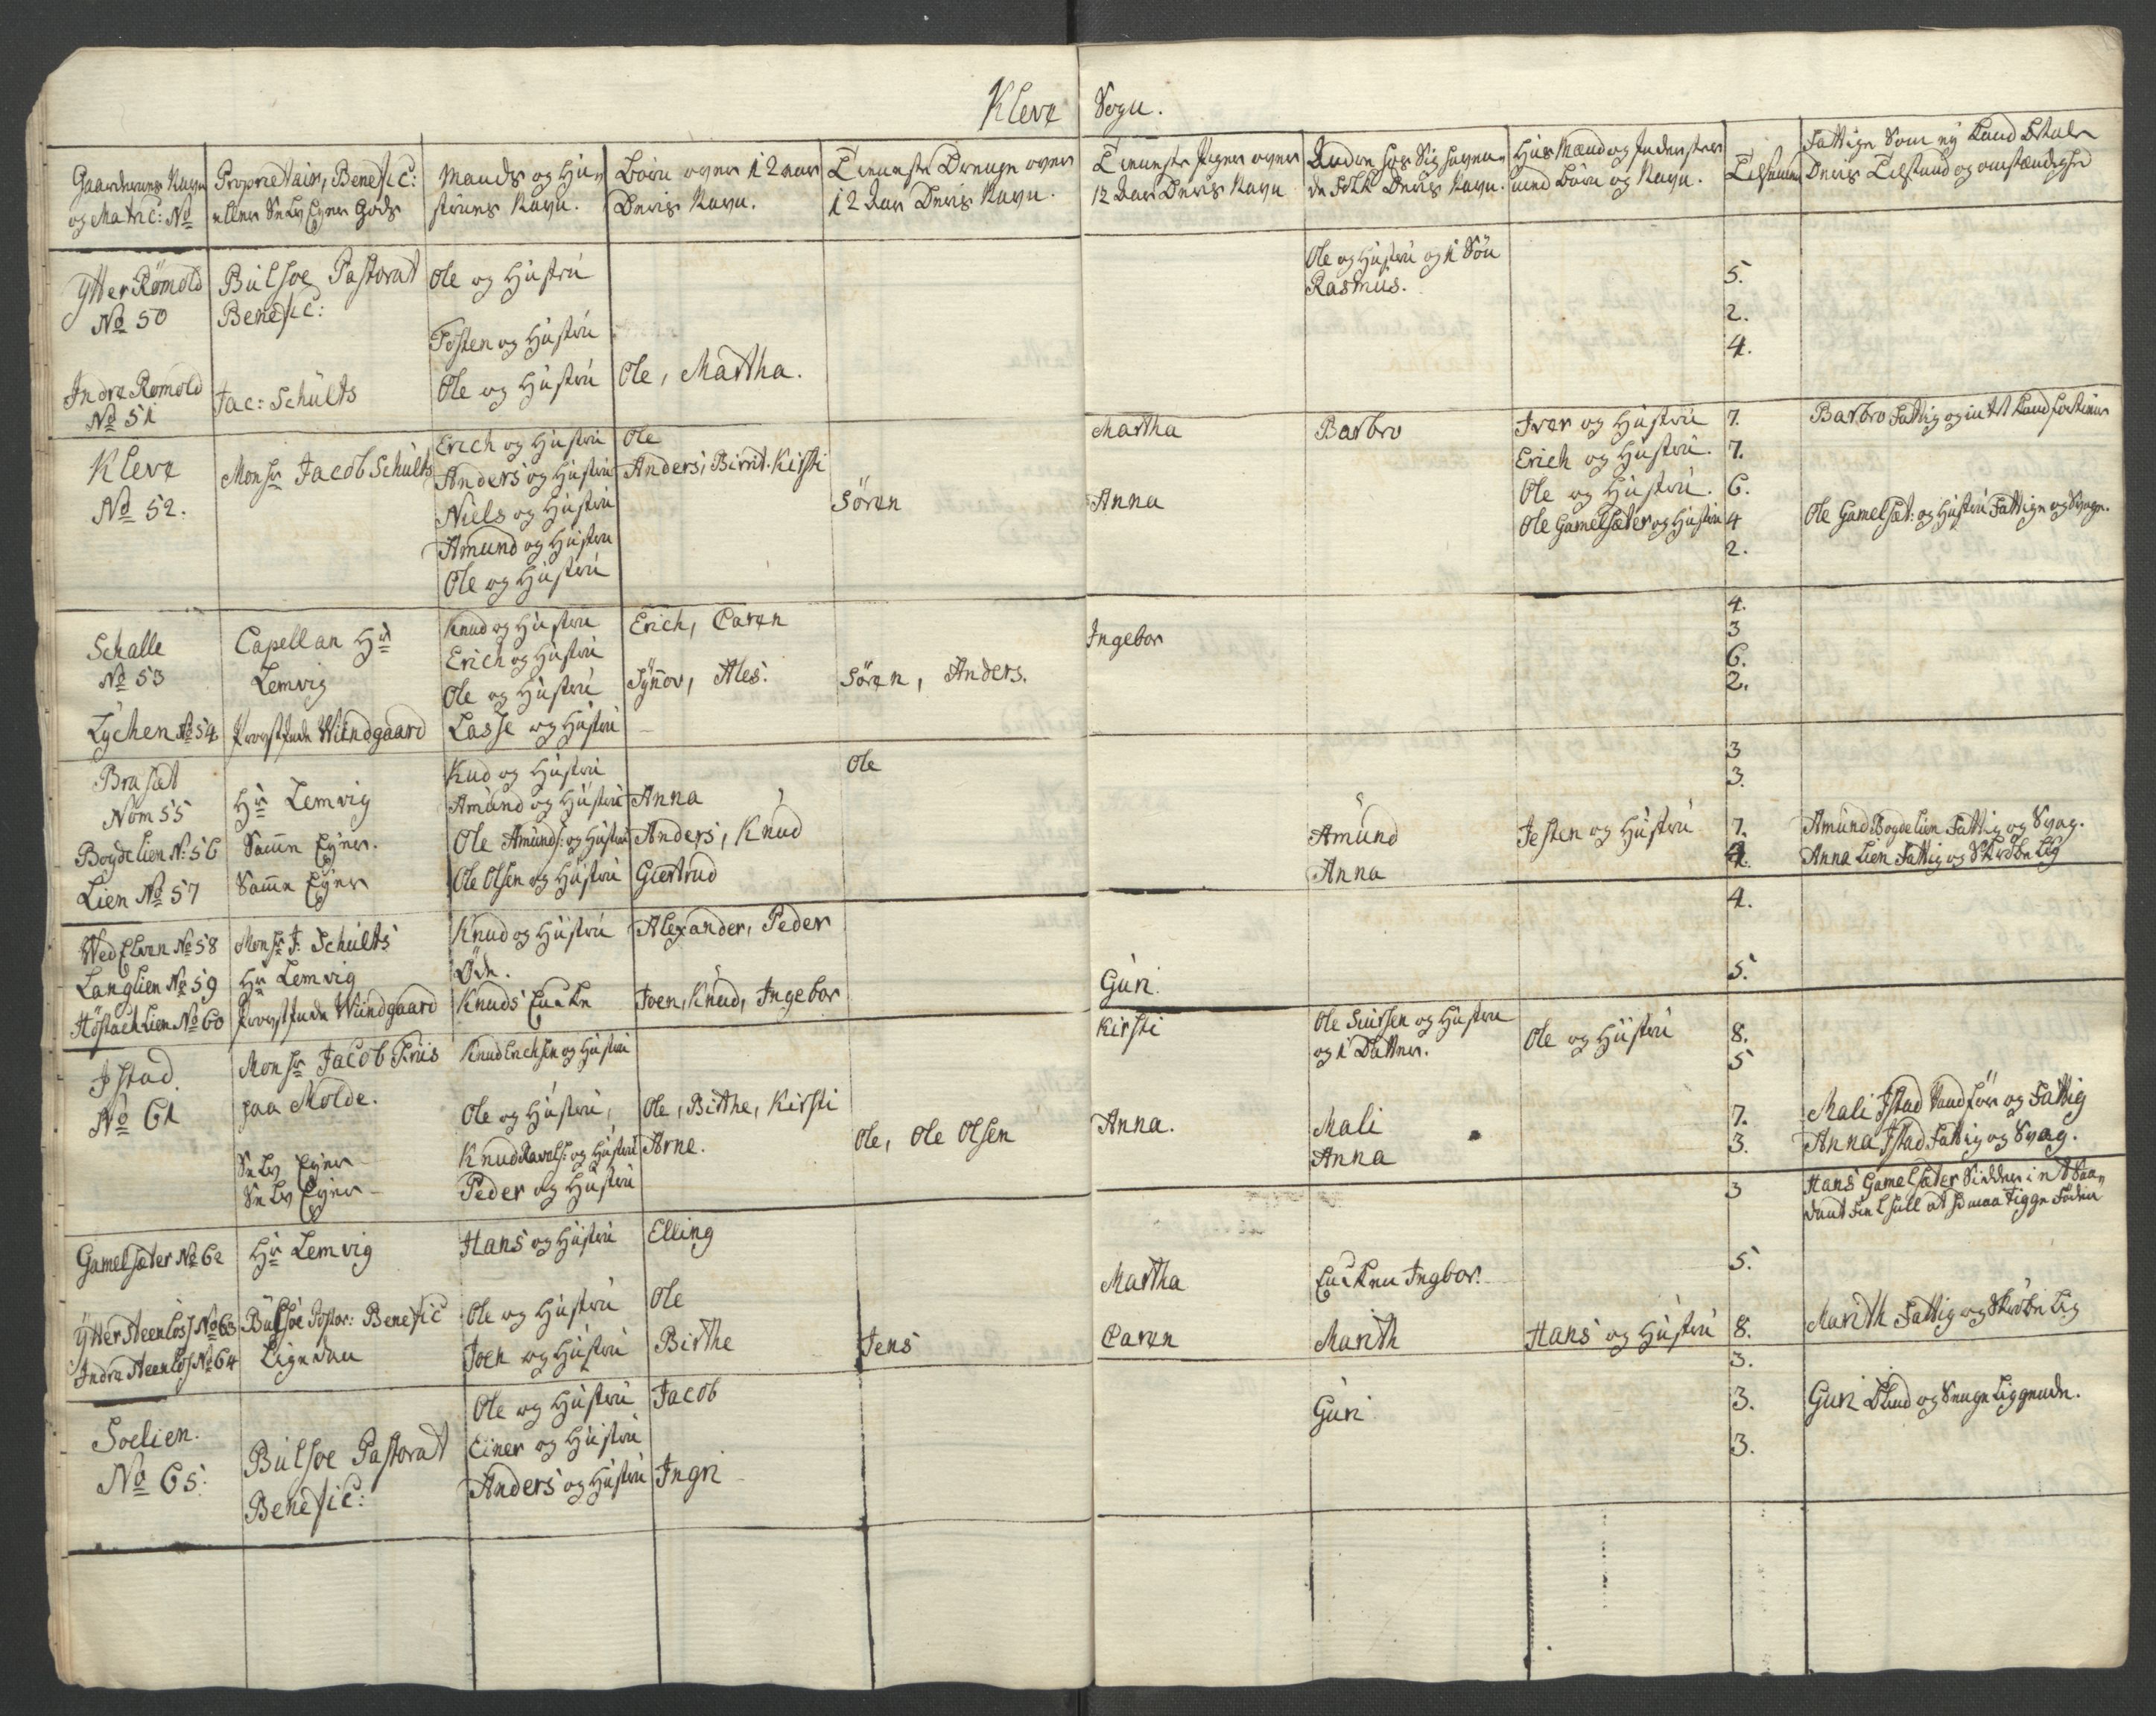 Kleve Sogn.
Gaardernes Navn og Matric: No
Proprietair, Benefic: eller Selv Eyer Gods
Mands og Hustrues Navn.
Börn over 12 aar Deris Navn.
Tieneste Drenge over 12 Aar Deris Navn.
Tieneste Piger over 12 Aar Deris Navn
Andre hos Sig havende Folk Deris Navn.
Huus Mænd og Inderster med Börn og Navn.
Tilsammen
Fattige Som ey kand betale Deris Tilstand og omstændighed
Ytter Römold No 50
Bulsoe Pastorat Benefic:
Ole og Hustru
Ole og Hustru og 1 Sön Rasmus.
5.
Tosten og Hustru
2.
Indre Romold No 51
Jac: Schults
Ole og Hustru
Ole, Martha.
4.
Kleve No 52.
Monsr Jacob Schults
Erich og Hustru
Ole
Martha
Barbro
Iver og Hustru
7.
Barbro Fattig og intet kand fortiene
Anders og Hustru
Anders, Birrit. Kirsti
Erich og Hustru.
7.
Niels og Hustru
Sören
Anna
Ole og Hustru.
6.
Amund og Hustru
Ole Gamelsæter og Hustru
4
Ole Gamelsæt: og Hustru Fattige og Svage.
Ole og Hustru
2.
Schalle No 53
Capellan Hr Lemvig
Knud og Hustru
Erich, Caren
4.
Erich og Hustru
Ingebor
3
Ole og Hustru
Synnov, Ales.
Sören, Anders.
6.
Lychen No 54
Provstinde Wiindgaard
Lasse og Hustru
2.
Brasæt Nom 55
Hr Lemvig
Kud og Hustru
Ole
3
Amund og Hustru
Anna
3.
Bogdelien No 56
Samme Eyer.
Ole Amunds: og Hustru
Anders, Knud
Amund
Josten og Hustru
7.
Amund Bogdelien Fattig og Svag.
Lien No 57
Samme Eyer
Ole Olsen og Hustru
Giertrud
Anna
4.
Anna Lien Fattig og Skröbelig
Wed Elven No 58
Monsr J: Schults
Knud og Hustru
Alexander, Peder
4.
Langlien No 59
Hr Lemvig
Öde.
Höstachlien No 60
Provstinde Wiindgaard
Knuds Encke
Joen, Knud, Ingebor
Guri.
5.
Istad. No 61
Monsr Jacob Friis paa Molde.
Knud Erichsen og Hustru
Kirsti
Ole Siursen og Hustru og 1 Datter.
Ole og Hustru
8.
Ole og Hustru,
Ole, Birthe, Kirsti
5
Selv Eyer
Knud Ravals: og Hustru
Arne.
Ole, Ole Olsen
Anna.
Mali
7.
Mali Istad Vandför og Fattig
Selv Eyer
Peder og Hustru
Anna
3.
Anna Istad Fattig og Svag.
Gamelsæter No 62
Hr Lemvig
Hans og Hustru
Elling
3
Hans Gamelsæter Sidder i et Saadant at hd maa Tigge Föden
Ytter Steenlös No 63
Bulsöe Pastor: Benefic
Ole og Hustru
Ole
Martha
Encken Ingbor.
5.
Indre Steenlös No 64
Ligedan
Joen og Hustru
Birthe
Jens
Caren
Marith
Hans og Hustru
8.
Marith Fattig og Skröbelig
Soelien. No 65.
Bulsoe Pastorat Benefic:
Ole og Hustru
Jacob
3.
Einer og Hustru
Guri
3.
Guri Blind og Sengeliggende.
Anders og Hustru
Ingri
3.